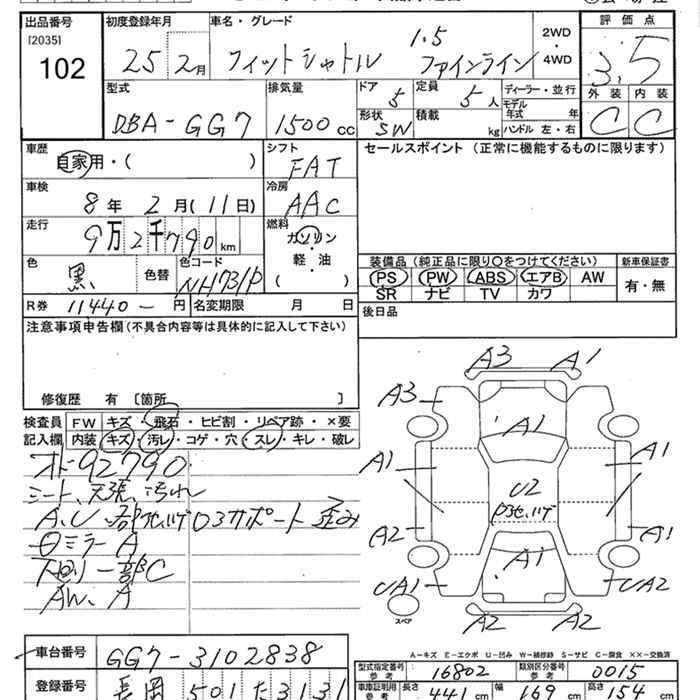 出品番号 初度登録年月 車名・グレード 評価点
[2035] 102 25 2月 フィットシャトル 1.5 ファインライン 2WD・4WD 3.5
外装 内装
C C
型式 排気量 ドア 定員 ディーラー・並行
DBA-GG7 1500cc 5 5人 モデル年式 年
形状 積載 ハンドル 左・右
SW kg
車歴 シフト セールスポイント (正常に機能するものに限ります)
自家用・( ) FAT
車検 冷房
8年 2月(11日) AAC
走行 燃料
9万2千790km ガソリン・軽・油
( )
色 色替 色コード
黒 NH731P
装備品 (純正品に限り○をつけてください) 新車保証書
PS PW ABS エアB AW 有・無
SR ナビ TV カワ
R券 11440-円 名変期限 月 日
後日品
注意事項申告欄(不具合内容等は具体的に記入して下さい)
修復歴 有 〔箇所 〕
検査員 FW キズ・飛石・ヒビ割・リペア跡・×要
記入欄 内装 キズ・汚レ・コゲ・穴・スレ・キレ・破レ
オド92790
シート、天張、汚れ
A.U 部地ハゲ ロアサポート歪み
ミラーA
下回り一部C
AW、A
A3 A1
A3 A1
A1 A1
U2
A2 A1
A1
UA1 UA2
A2 A2
スペア
A-キズ E-エクボ U-凹み W-補修跡 S-サビ C-腐食 XX-交換済
車台番号 GG7-3102838
型式指定番号 参考 16802 類別区分番号 参考 0015
登録番号 長岡 501 た 3131
車車証明用 参考 長さ 441cm 幅 169cm 高さ 154cm